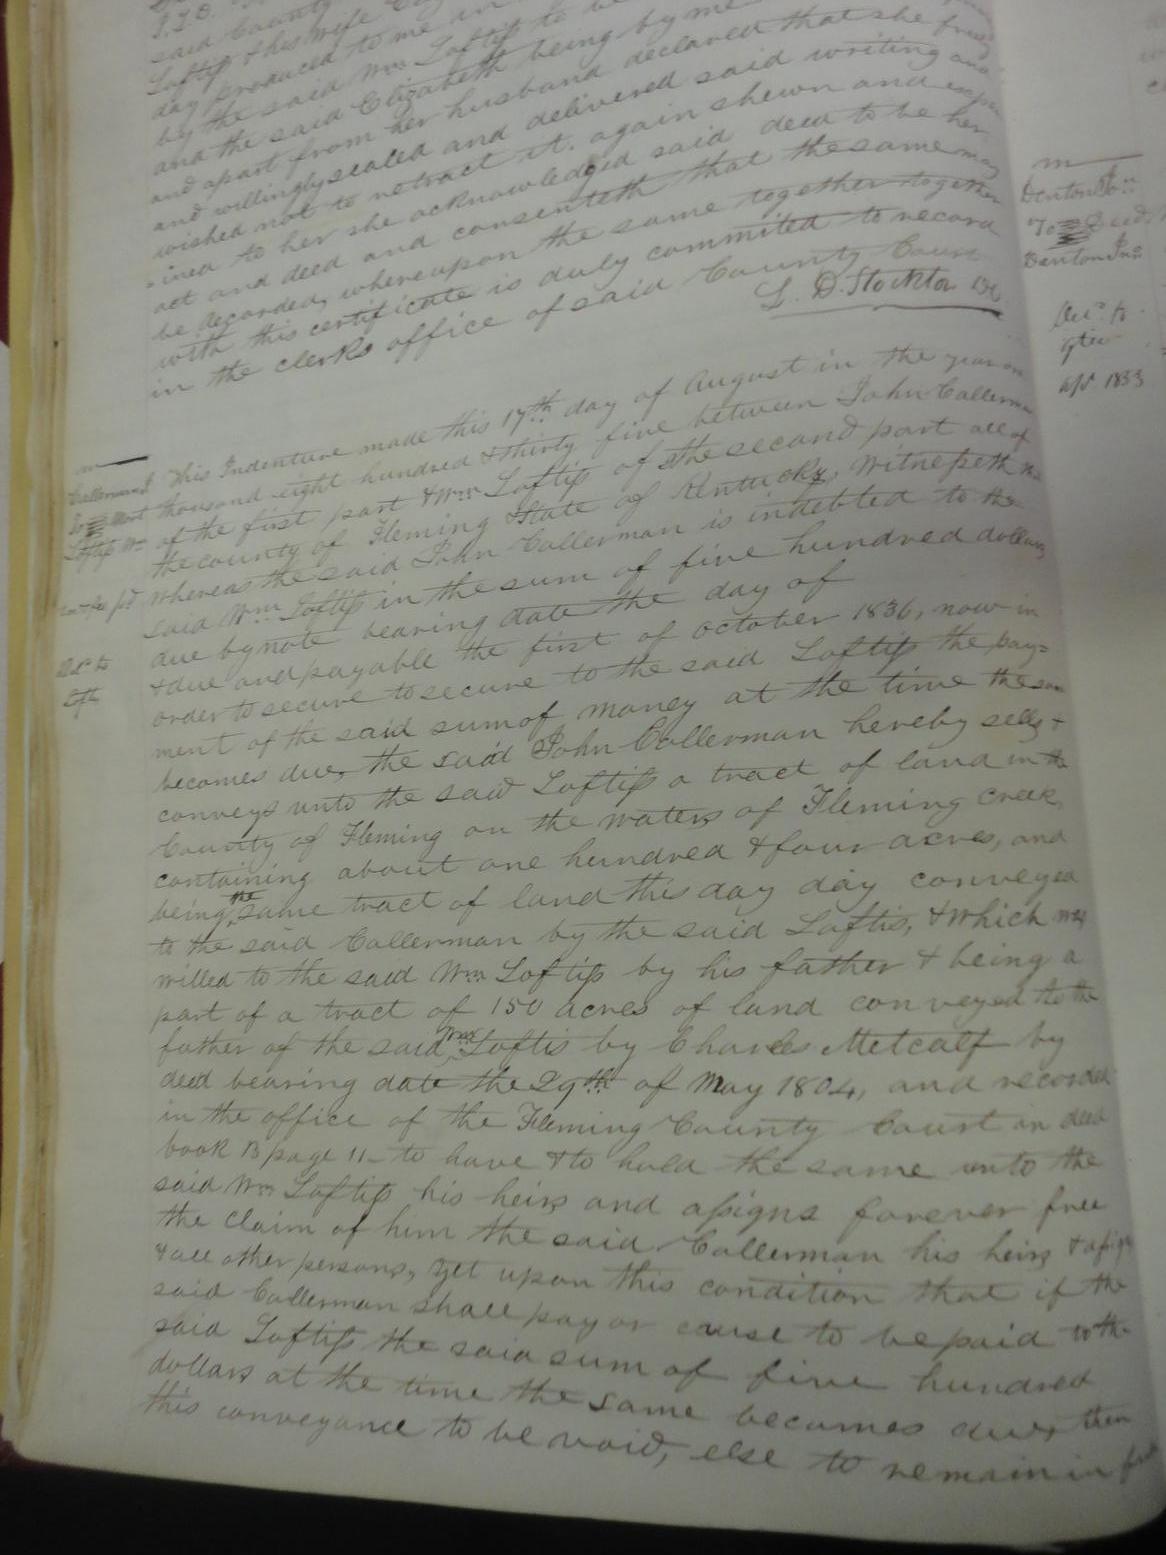 said County
Loftiss & his wife
day produced to me in
by the said Wm Loftiss to be
and the said Elizabeth being by me
and apart from her husband declared that she freely
and willingly sealed and delivered said writing and
wished not to retract it. again shewn and
ined to her she acknowledged said deed to be her
act and deed and consenteth that the same may
be recorded, whereupon the same together together
with this certificate is duly commited to record
in the clerks office of said County Court
L. D. Stockton
m
Callerman J
To Mort
Loftiss Wm
This Indenture made this 17th day of August in the year on
thousand eight hundred & thirty five between John Callerman
of the first part & Wm Loftiss of the second part all of
the county of Fleming & State of Kentucky, Witnesseth
whereas the said John Callerman is indebted to the
said Wm Loftiss in the sum of five hundred dollars
due by note bearing date the day of
& due and payable the first of October 1836, now in
order to secure to secure to the said Loftiss the pay=
ment of the said sum of money at the time the same
becomes due, the said John Callerman hereby sells &
conveys unto the said Loftiss a tract of land in the
County of Fleming on the waters of Fleming Creek
containing about one hundred & four acres, and
being the same tract of land this day day conveyed
to the said Callerman by the said Loftis, & which was
willed to the said Wm Loftiss by his father & being a
part of a tract of 150 acres of land conveyed to the
father of the said Wm Loftis by Charles Metcalf by
deed bearing date the 29th of May 1804, and recorded
in the office of the Fleming County Court in deed
book B page 11 to have & to hold the same unto the
said Wm Loftiss his heirs and assigns forever free
the claim of him the said Callerman his heirs & assigns
& all other persons, yet upon this condition that if the
said Callerman shall pay or cause to be paid to the
said Loftiss the said sum of five hundred
dollars at the time the same becomes due, then
this conveyance to be void, else to remain in
m
Denton
To Deed
Denton Jno
apl 1833